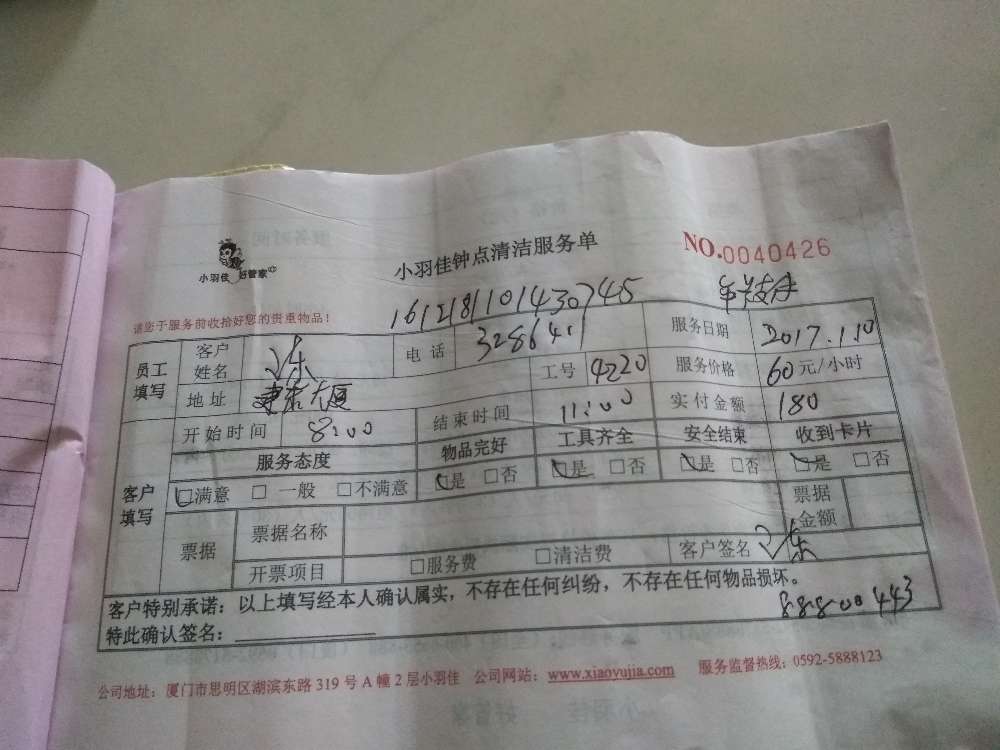 小羽佳 好管家
小羽佳钟点清洁服务单
NO.0040426
请您于服务前收拾好您的贵重物品!
1612181101430745
员工填写 客户姓名 电话 328641 服务日期 2017.1.10
地址 大厦 工号 4220 服务价格 60元/小时
开始时间 8:00 结束时间 11:00 实付金额 180
客户填写 服务态度 物品完好 工具齐全 安全结束 收到卡片
□满意 □一般 □不满意 □是 □否 □是 □否 □是 □否 □是 □否
票据 票据名称 票据金额
开票项目 □服务费 □清洁费 客户签名
客户特别承诺:以上填写经本人确认属实,不存在任何纠纷,不存在任何物品损坏。
特此确认签名: 88800443
公司地址:厦门市思明区湖滨东路 319 号 A 幢 2 层小羽佳 公司网站:www.xiaoyujia.com 服务监督热线:0592-5888123